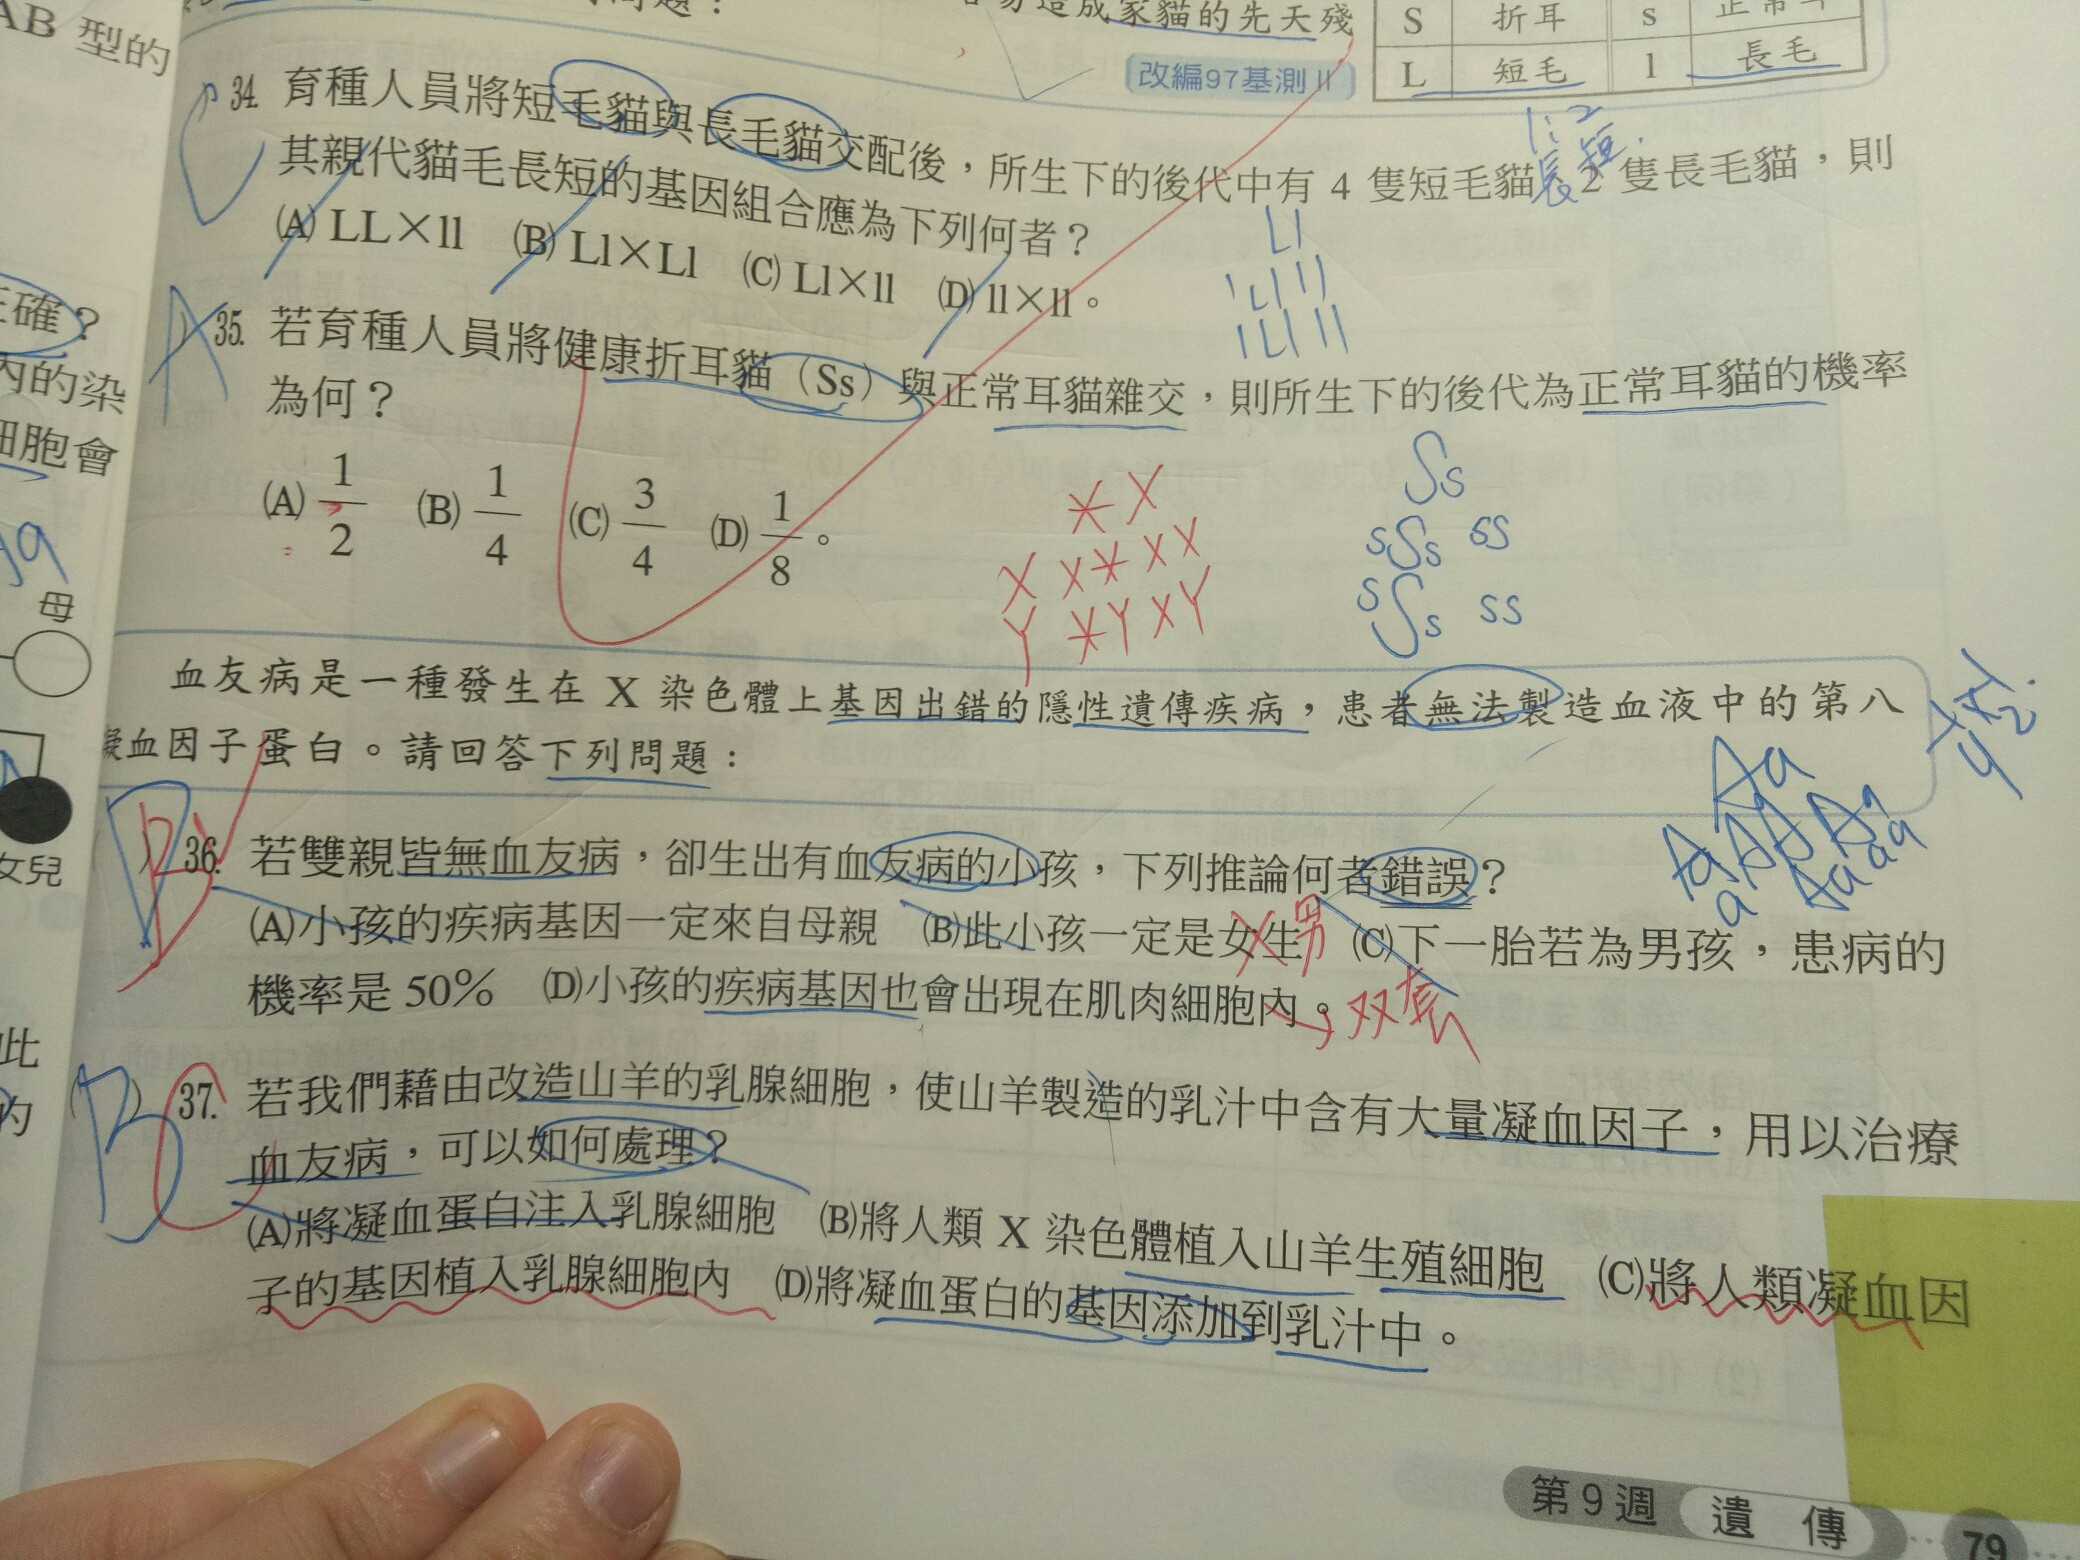 AB 型的
易造成家貓的先天殘
改編97基測Ⅱ
S 折耳 s 正常耳
L 短毛 l 長毛
34. 育種人員將短毛貓與長毛貓交配後，所生下的後代中有 4 隻短毛貓、2 隻長毛貓，則
其親代貓毛長短的基因組合應為下列何者？
(A) LL×ll (B) Ll×Ll (C) Ll×ll (D) ll×ll。
1:2
長 短
Ll
l Ll ll
l Ll ll
A
35. 若育種人員將健康折耳貓（Ss）與正常耳貓雜交，則所生下的後代為正常耳貓的機率
為何？
(A) 1/2 (B) 1/4 (C) 3/4 (D) 1/8。
Ss
s Ss ss
s Ss ss
X X
X XX XX
Y XY XY
確？
內的染
細胞會
母
女兒
此
內
血友病是一種發生在 X 染色體上基因出錯的隱性遺傳疾病，患者無法製造血液中的第八
凝血因子蛋白。請回答下列問題：
B
36. 若雙親皆無血友病，卻生出有血友病的小孩，下列推論何者錯誤？
(A)小孩的疾病基因一定來自母親 (B)此小孩一定是女生 (C)下一胎若為男孩，患病的
男
機率是 50% (D)小孩的疾病基因也會出現在肌肉細胞內。
→双套
B
C
37. 若我們藉由改造山羊的乳腺細胞，使山羊製造的乳汁中含有大量凝血因子，用以治療
血友病，可以如何處理？
(A)將凝血蛋白注入乳腺細胞 (B)將人類 X 染色體植入山羊生殖細胞 (C)將人類凝血因
子的基因植入乳腺細胞內 (D)將凝血蛋白的基因添加到乳汁中。
第 9 週 遺 傳 79